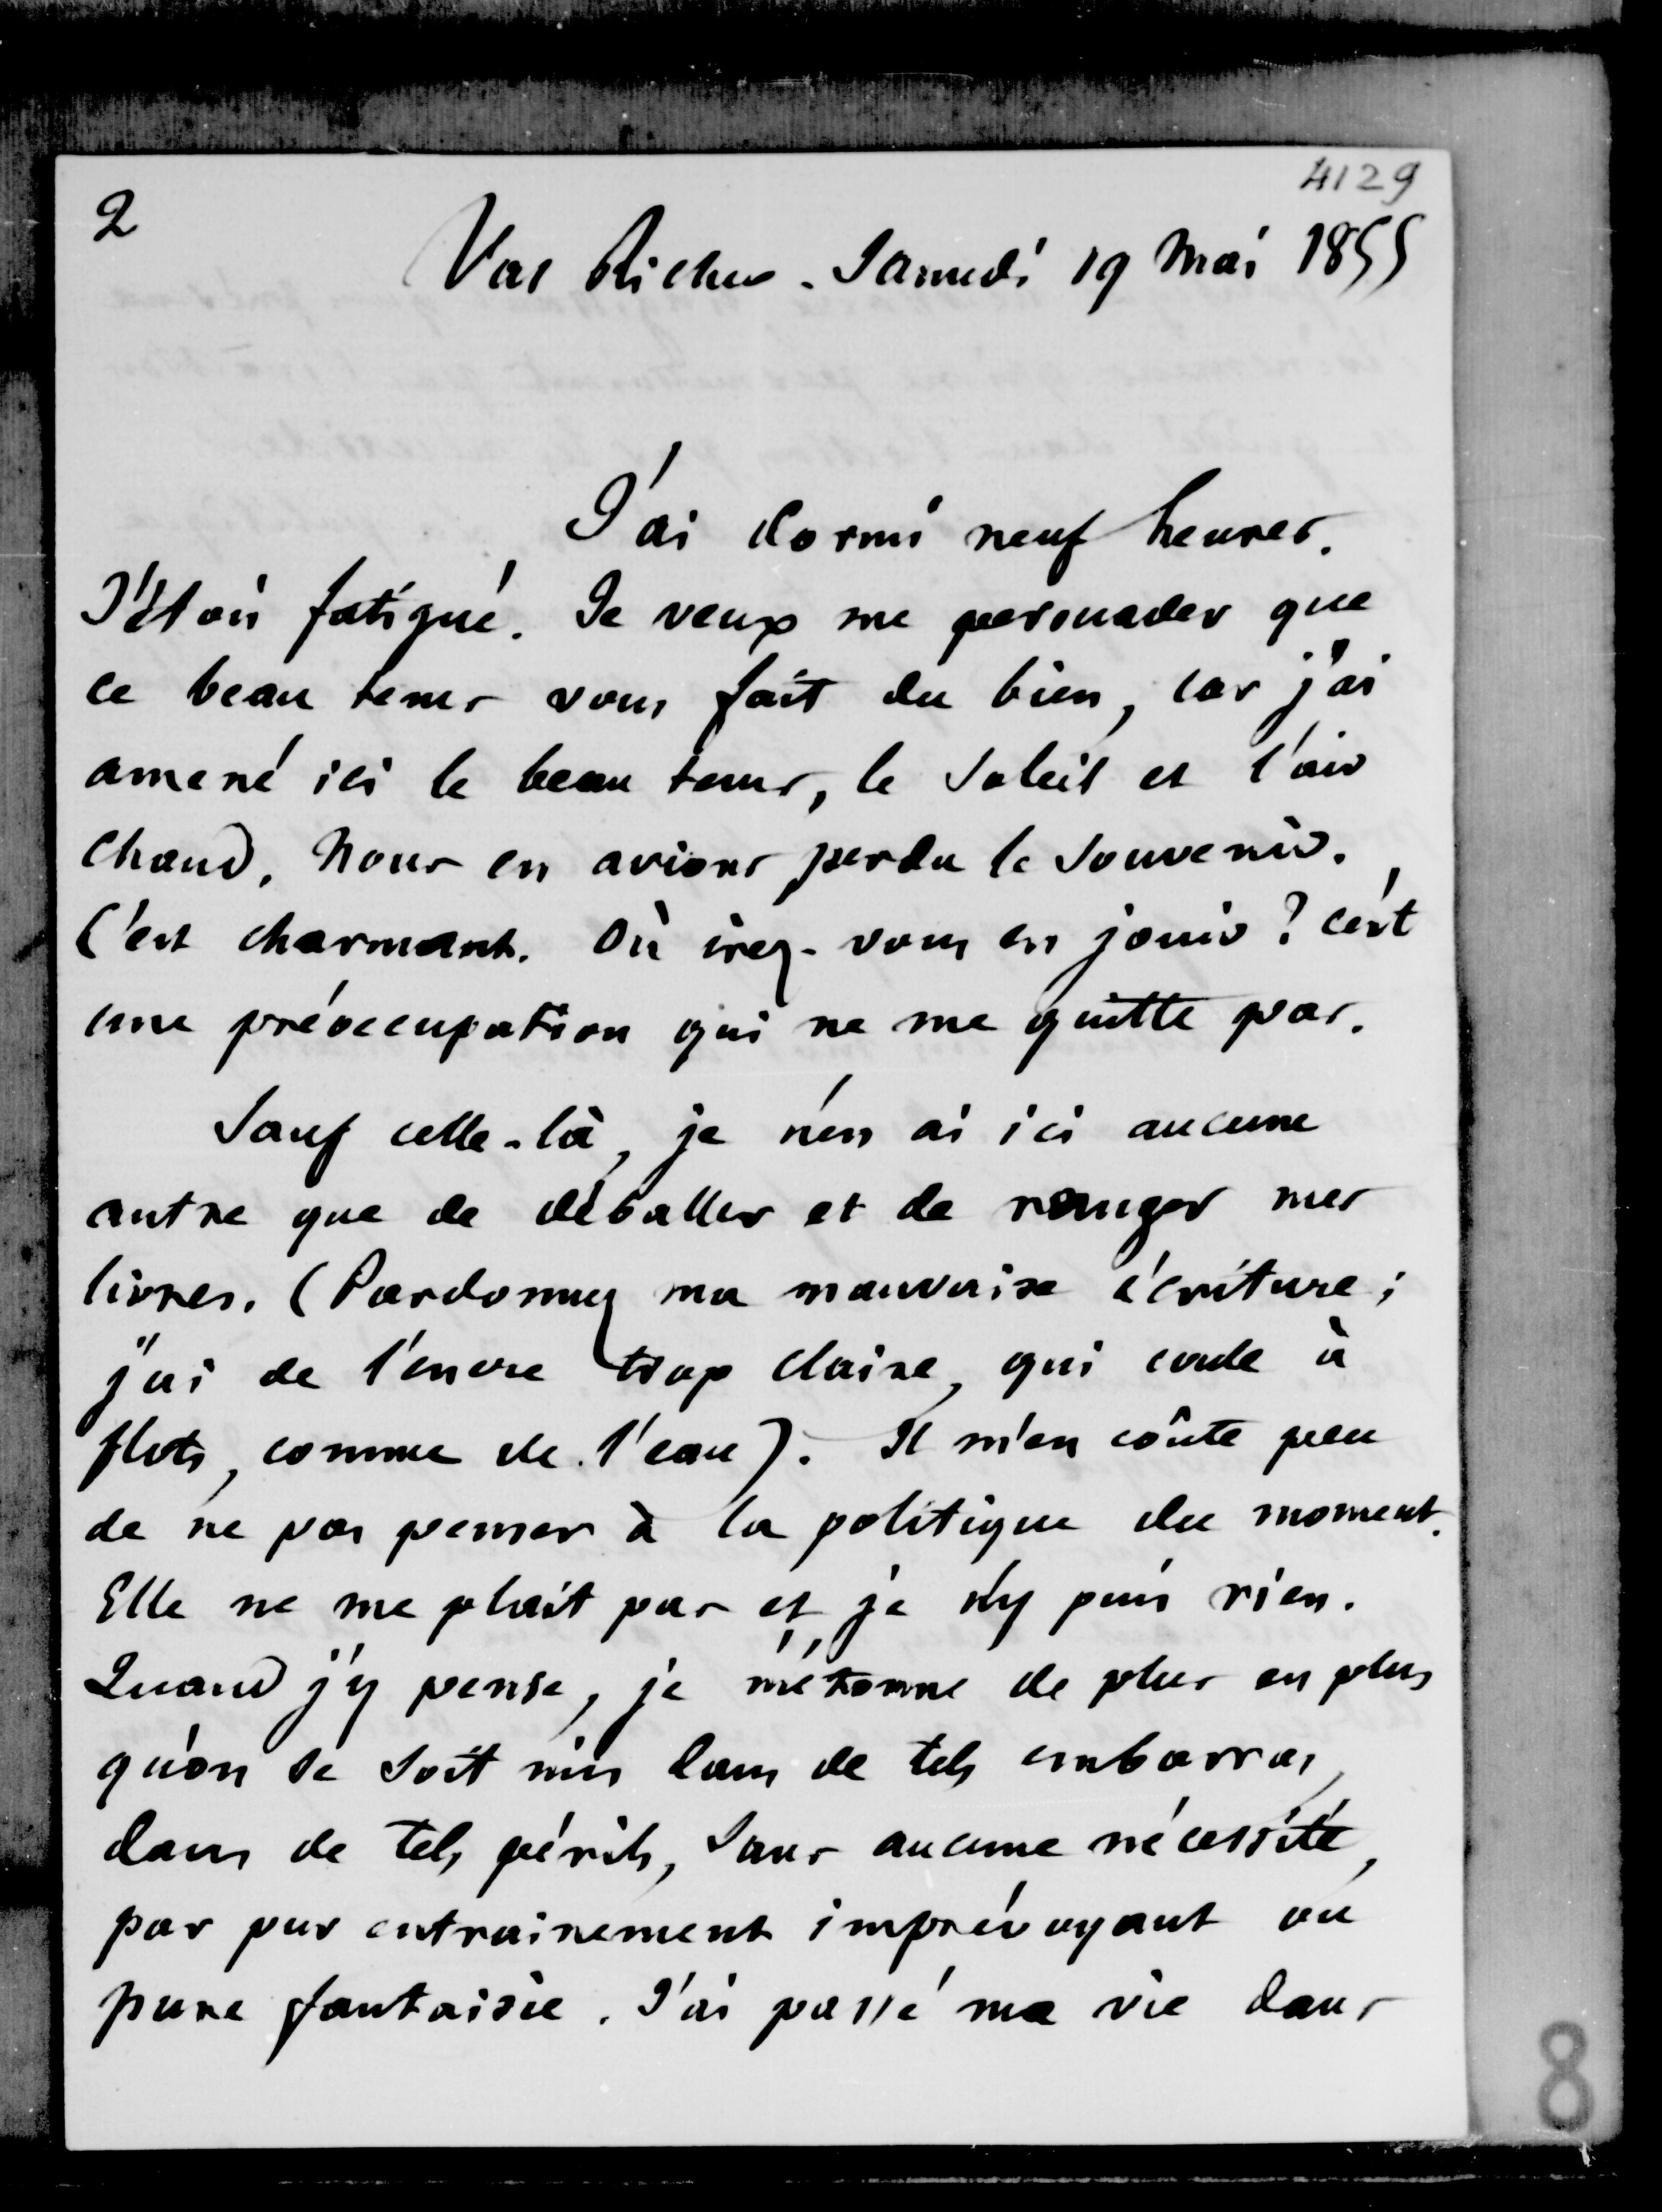 4129
2
Val Richer - Samedi 19 Mai 1855
J'ai dormi neuf heures.
J'étois fatigué. Je veux me persuader que
ce beau tems vous fait du bien, car j'ai
amené ici le beau tems, le soleil et l'air
chaud. Nous en avions perdu le souvenir.
C'est charmant. Où irez-vous en jouir ? c'est
une préoccupation qui ne me quitte pas.
Sauf celle-là, je n'en ai ici aucune
autre que de déballer et de ranger mes
livres. (Pardonnez ma mauvaise écriture ;
j'ai de l'encre trop claire, qui coule à
flots, comme de l'eau). Il m'en coûte peu
de ne pas penser à la politique du moment.
Elle ne me plait pas et je n'y puis rien.
Quand j'y pense, je m'étonne de plus en plus
qu'on se soit mis dans de tels embarras,
dans de tels périls, sans aucune nécessité,
par pur entrainement imprévoyant ou
pure fantaisie. J'ai passé ma vie dans
8